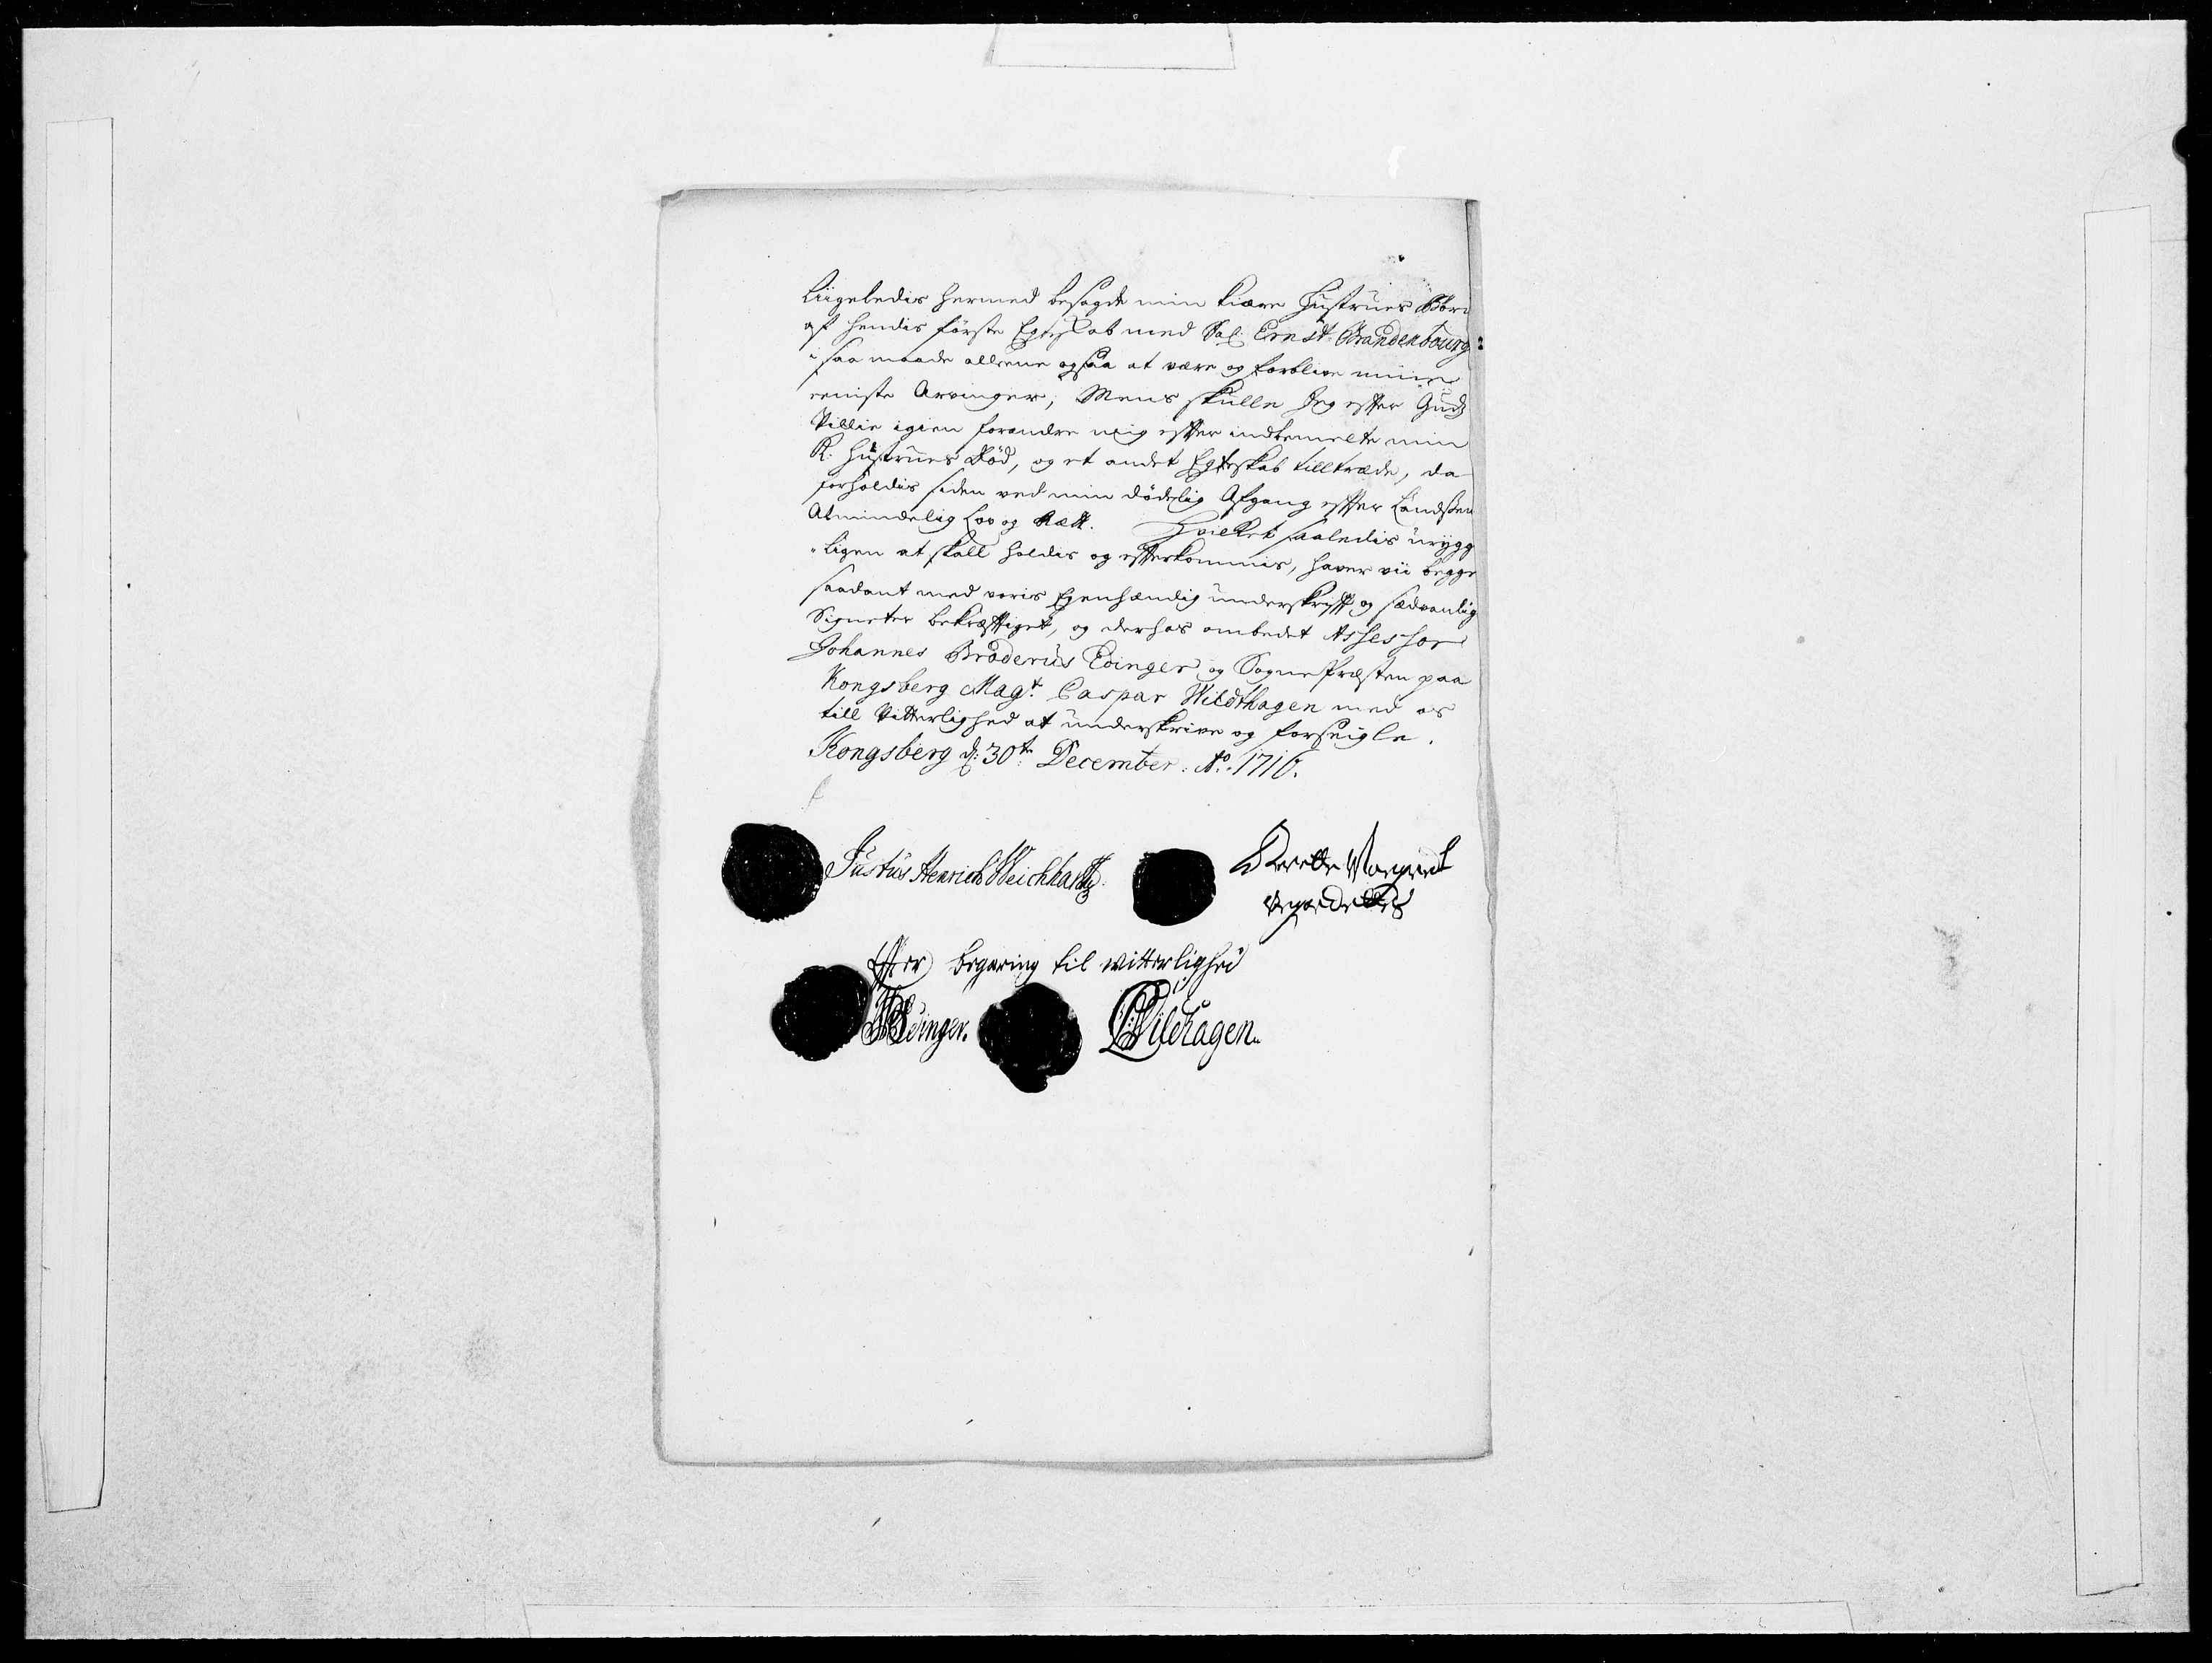 Liigeledis hermed besagde min kiære Hustrues Børn
aff hendis første Egteskab med Sal: Ernst Brandenbourg
i saa maade alleene ogsaa at være og forblive miine
eeniste Arvinger, Mens skulle Jeg effter Guds
Villie igien forandre mig effter indbemelte min
K: Hustrues Død, og et andet Egteskab tilltræde, da
forholdis siden ved min dødelig Afgang effter Landsens
Almindelig Lov og Rætt. Hvilket saaledis urygg
-ligen at skall holdes og effterkommis, haver vii begge
saadant med voris Egenhændig underskrifft og sædvanlig
Signeter bekræfftiget, og derhos ombedet Assessor
Johannes Broderüs Edinger og Sognepræsten paa
Kongsberg Magr. Caspar Wildthagen med os
till Vitterlighed at underskrive og forseigle.
Kongsberg d: 30te December: Ao. 1716.
Justus Henrich Weichhardt.
Dorethe Margret
Effter begæring til vitterlighed
JBEdinger.
CWildhagen.